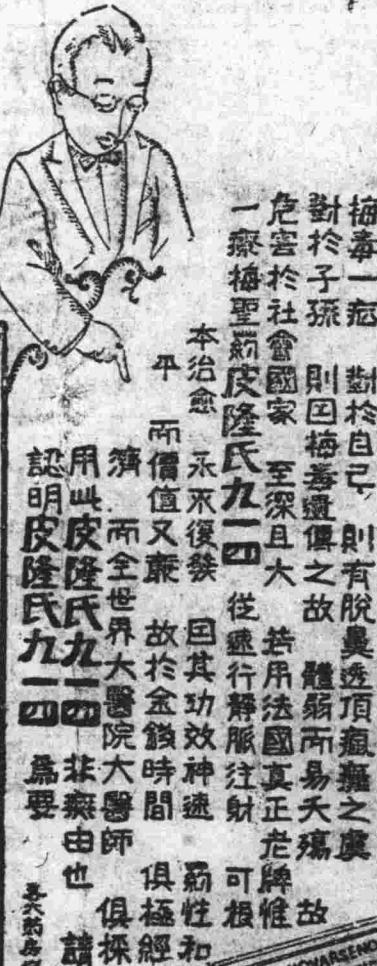 梅毒一症　對於自己　則有脫鼻透頂瘋癱之虞
對於子孫　則因梅毒遺傳之故　體弱而易夭殤　故
危害於社會國家　至深且大　若用法國真正老牌惟
一療梅聖葯皮隆氏九一四　從速行靜脈注射　可根
本治愈　永不復發　因其功效神速　葯性和
平　而價值又廉　故於金錢時間　俱極經
濟　而全世界大醫院大醫師　俱採
用此皮隆氏九一四　非無由也　請
認明皮隆氏九一四　爲要
大葯房
NOVARSENO